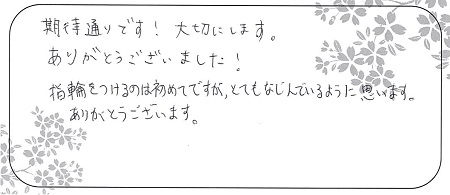 期待通りです！大切にします。
ありがとうございました！
指輪をつけるのは初めてですが、とてもなじんでいるように思います。
ありがとうございます。